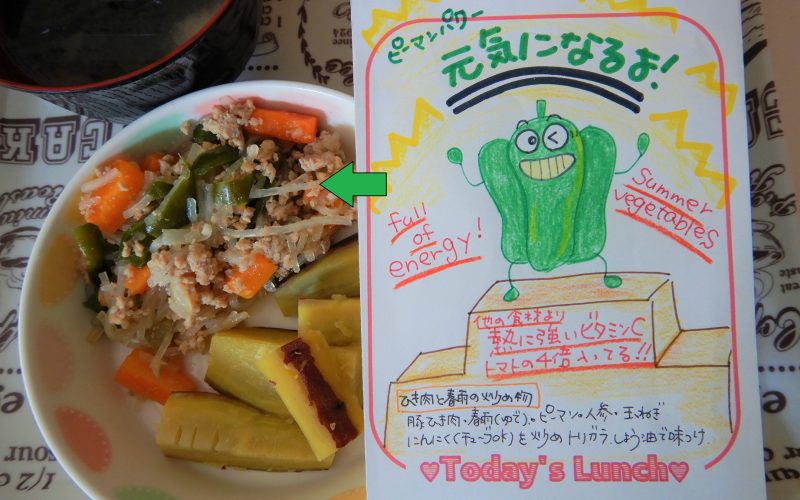 ピーマンパワー
元気になるよ!
full
of
energy!
Summer
vegetables
他の食材より
熱に強いビタミンC
トマトの4倍入ってる!!
ひき肉と春雨の炒め物
豚ひき肉・春雨(ゆで)。ピーマン。人参・玉ねぎ
にんにく(チューブOK)を炒め トリガラ、しょう油で味つけ
Today's Lunch
CAK
1/2 c
our